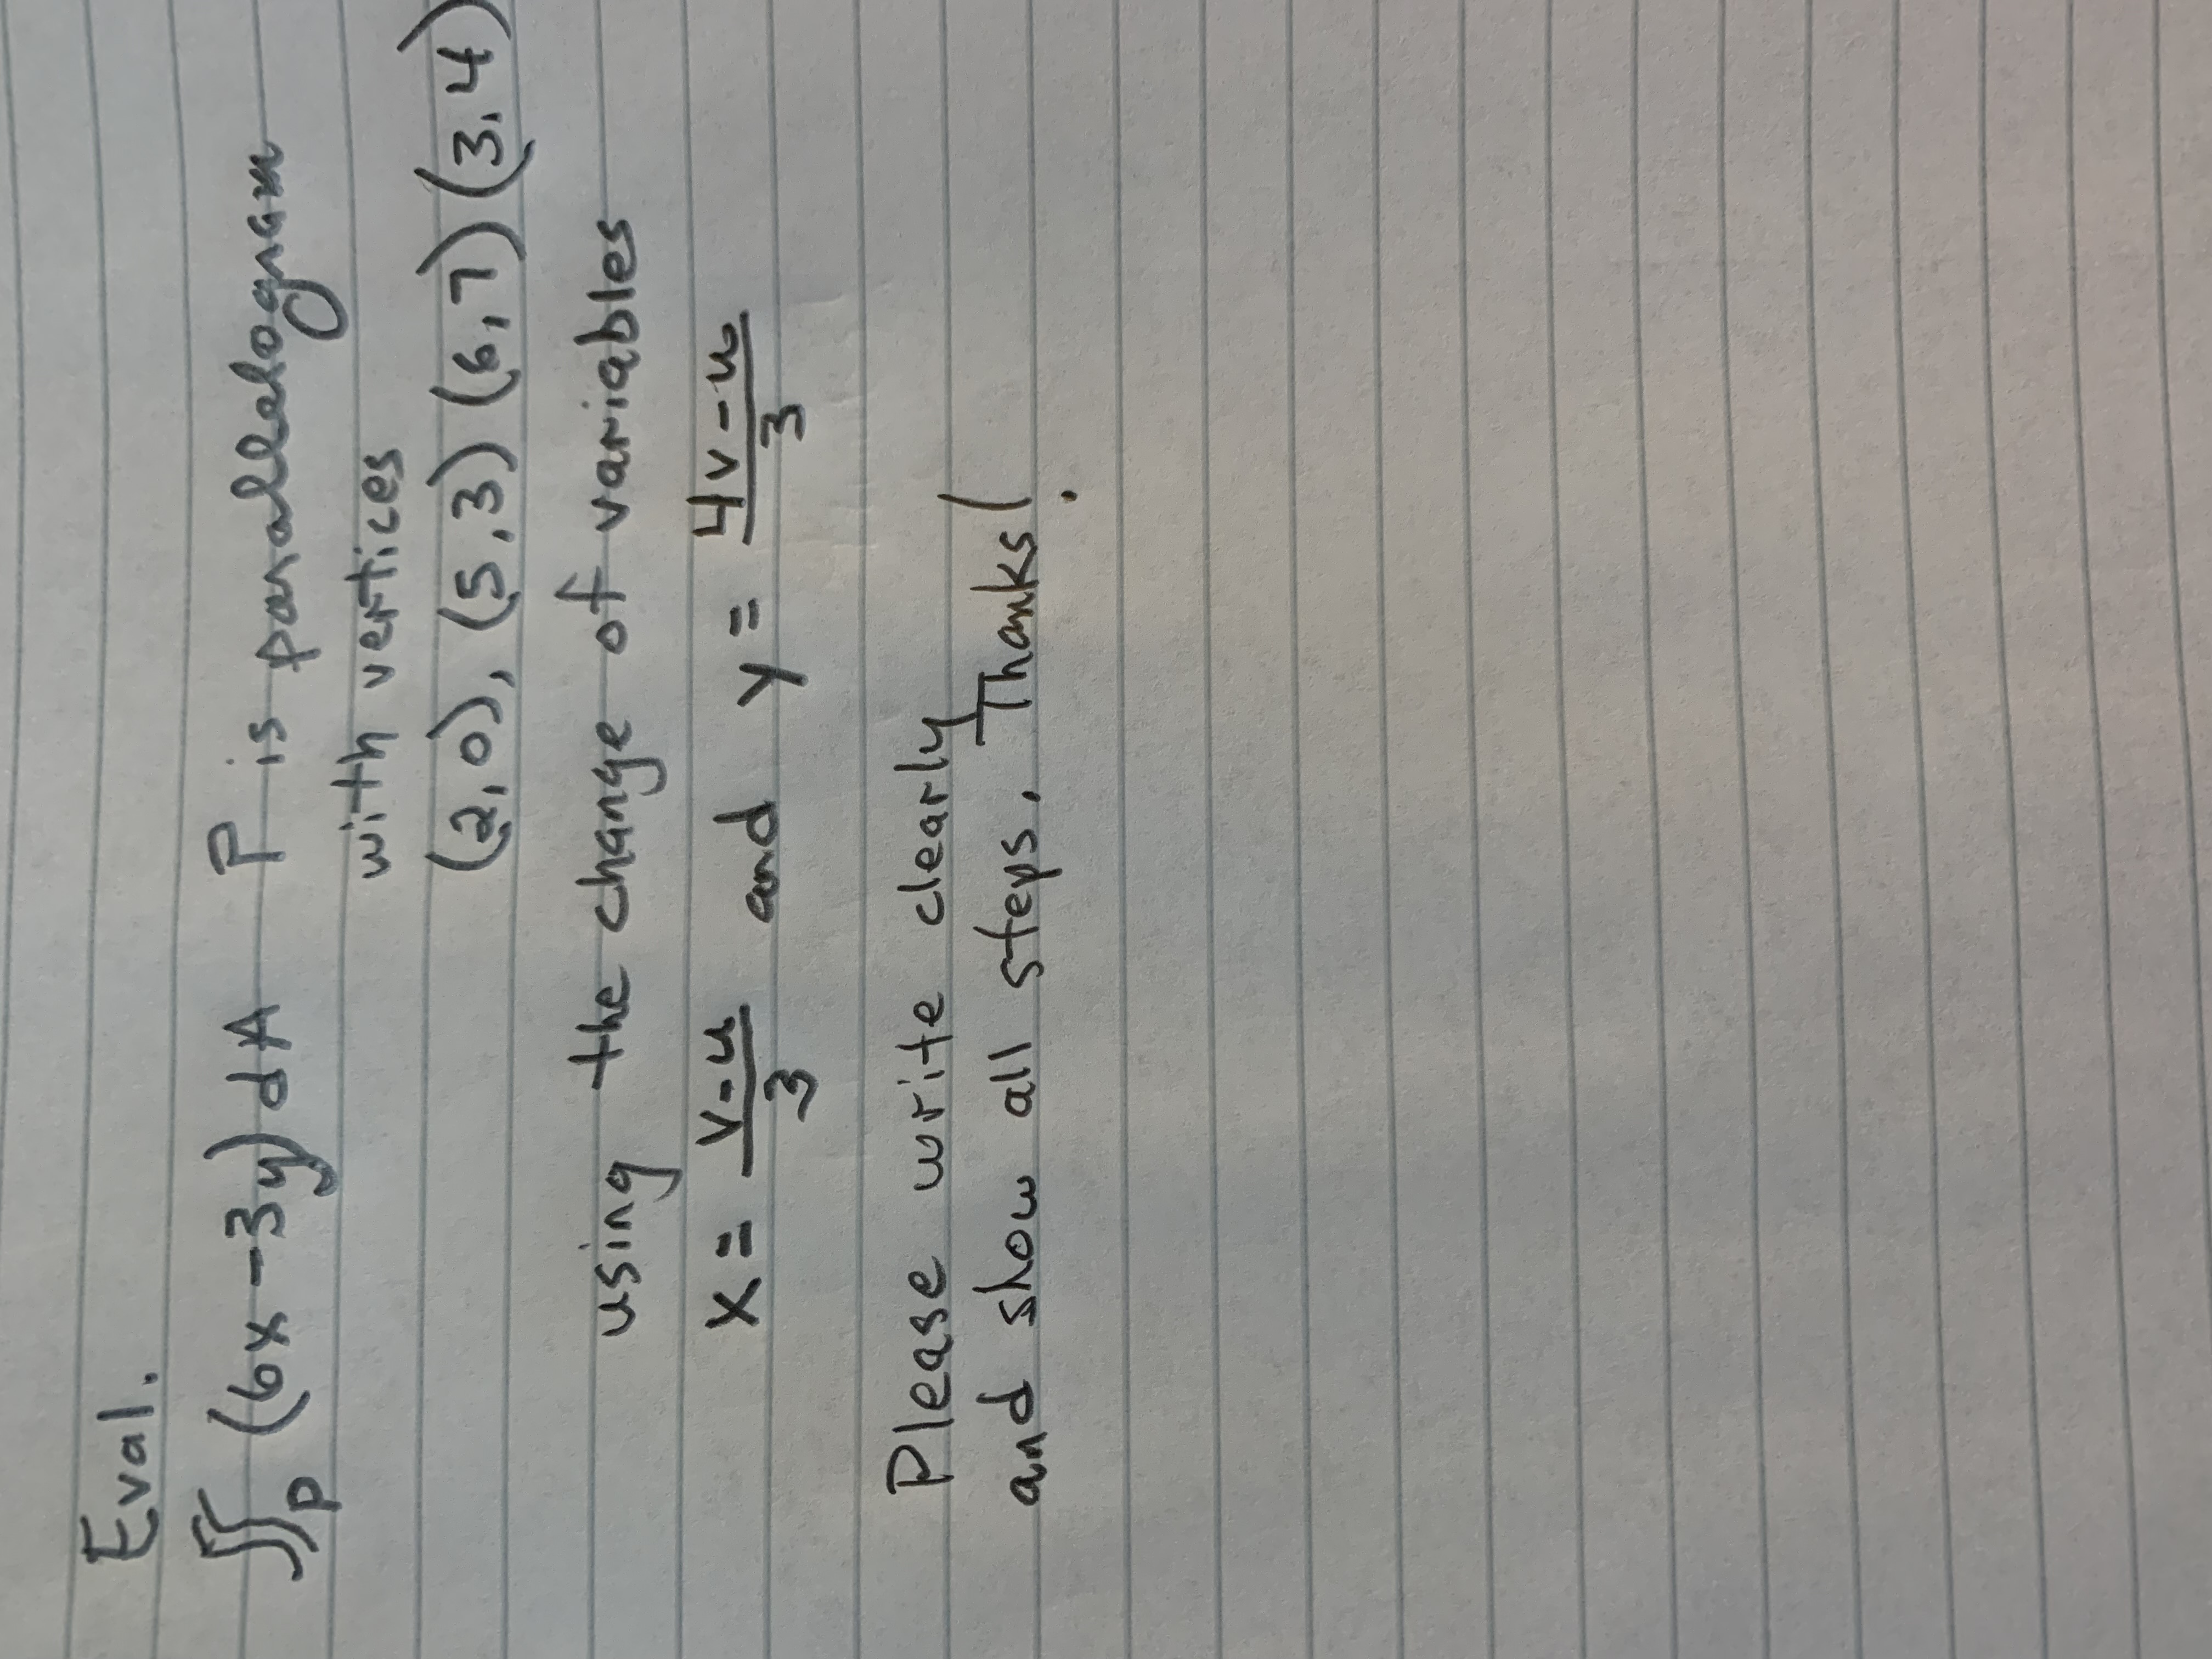 Eval.
∬_P (6x - 3y) dA P is parallelogram
with vertices
(2,0), (5,3) (6,7) (3,4)
using the change of variables
x = (v-u)/3 and y = (4v-u)/3
Please write clearly
and show all steps. Thanks!